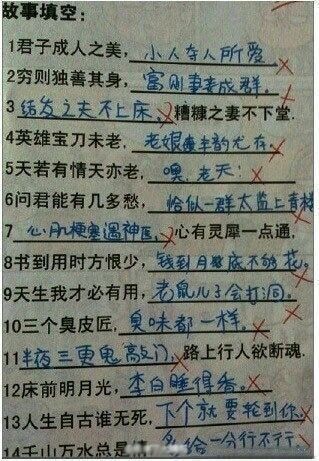 故事填空:
1君子成人之美,小人夺人所爱。
2穷则独善其身,富则妻妾成群。
3结发之夫不上床,糟糠之妻不下堂.
4英雄宝刀未老,老娘丰韵尤存。
5天若有情天亦老,噢,老天!
6问君能有几多愁,恰似一群太监上青楼
7心肌梗塞遇神医,心有灵犀一点通,
8书到用时方恨少,钱到月底不够花。
9天生我才必有用,老鼠儿子会打洞。
10三个臭皮匠,臭味都一样。
11半夜三更鬼敲门,路上行人欲断魂.
12床前明月光,李白睡得香。
13人生自古谁无死,下个就要轮到你
14千山万水总是情,多给一分行不行。